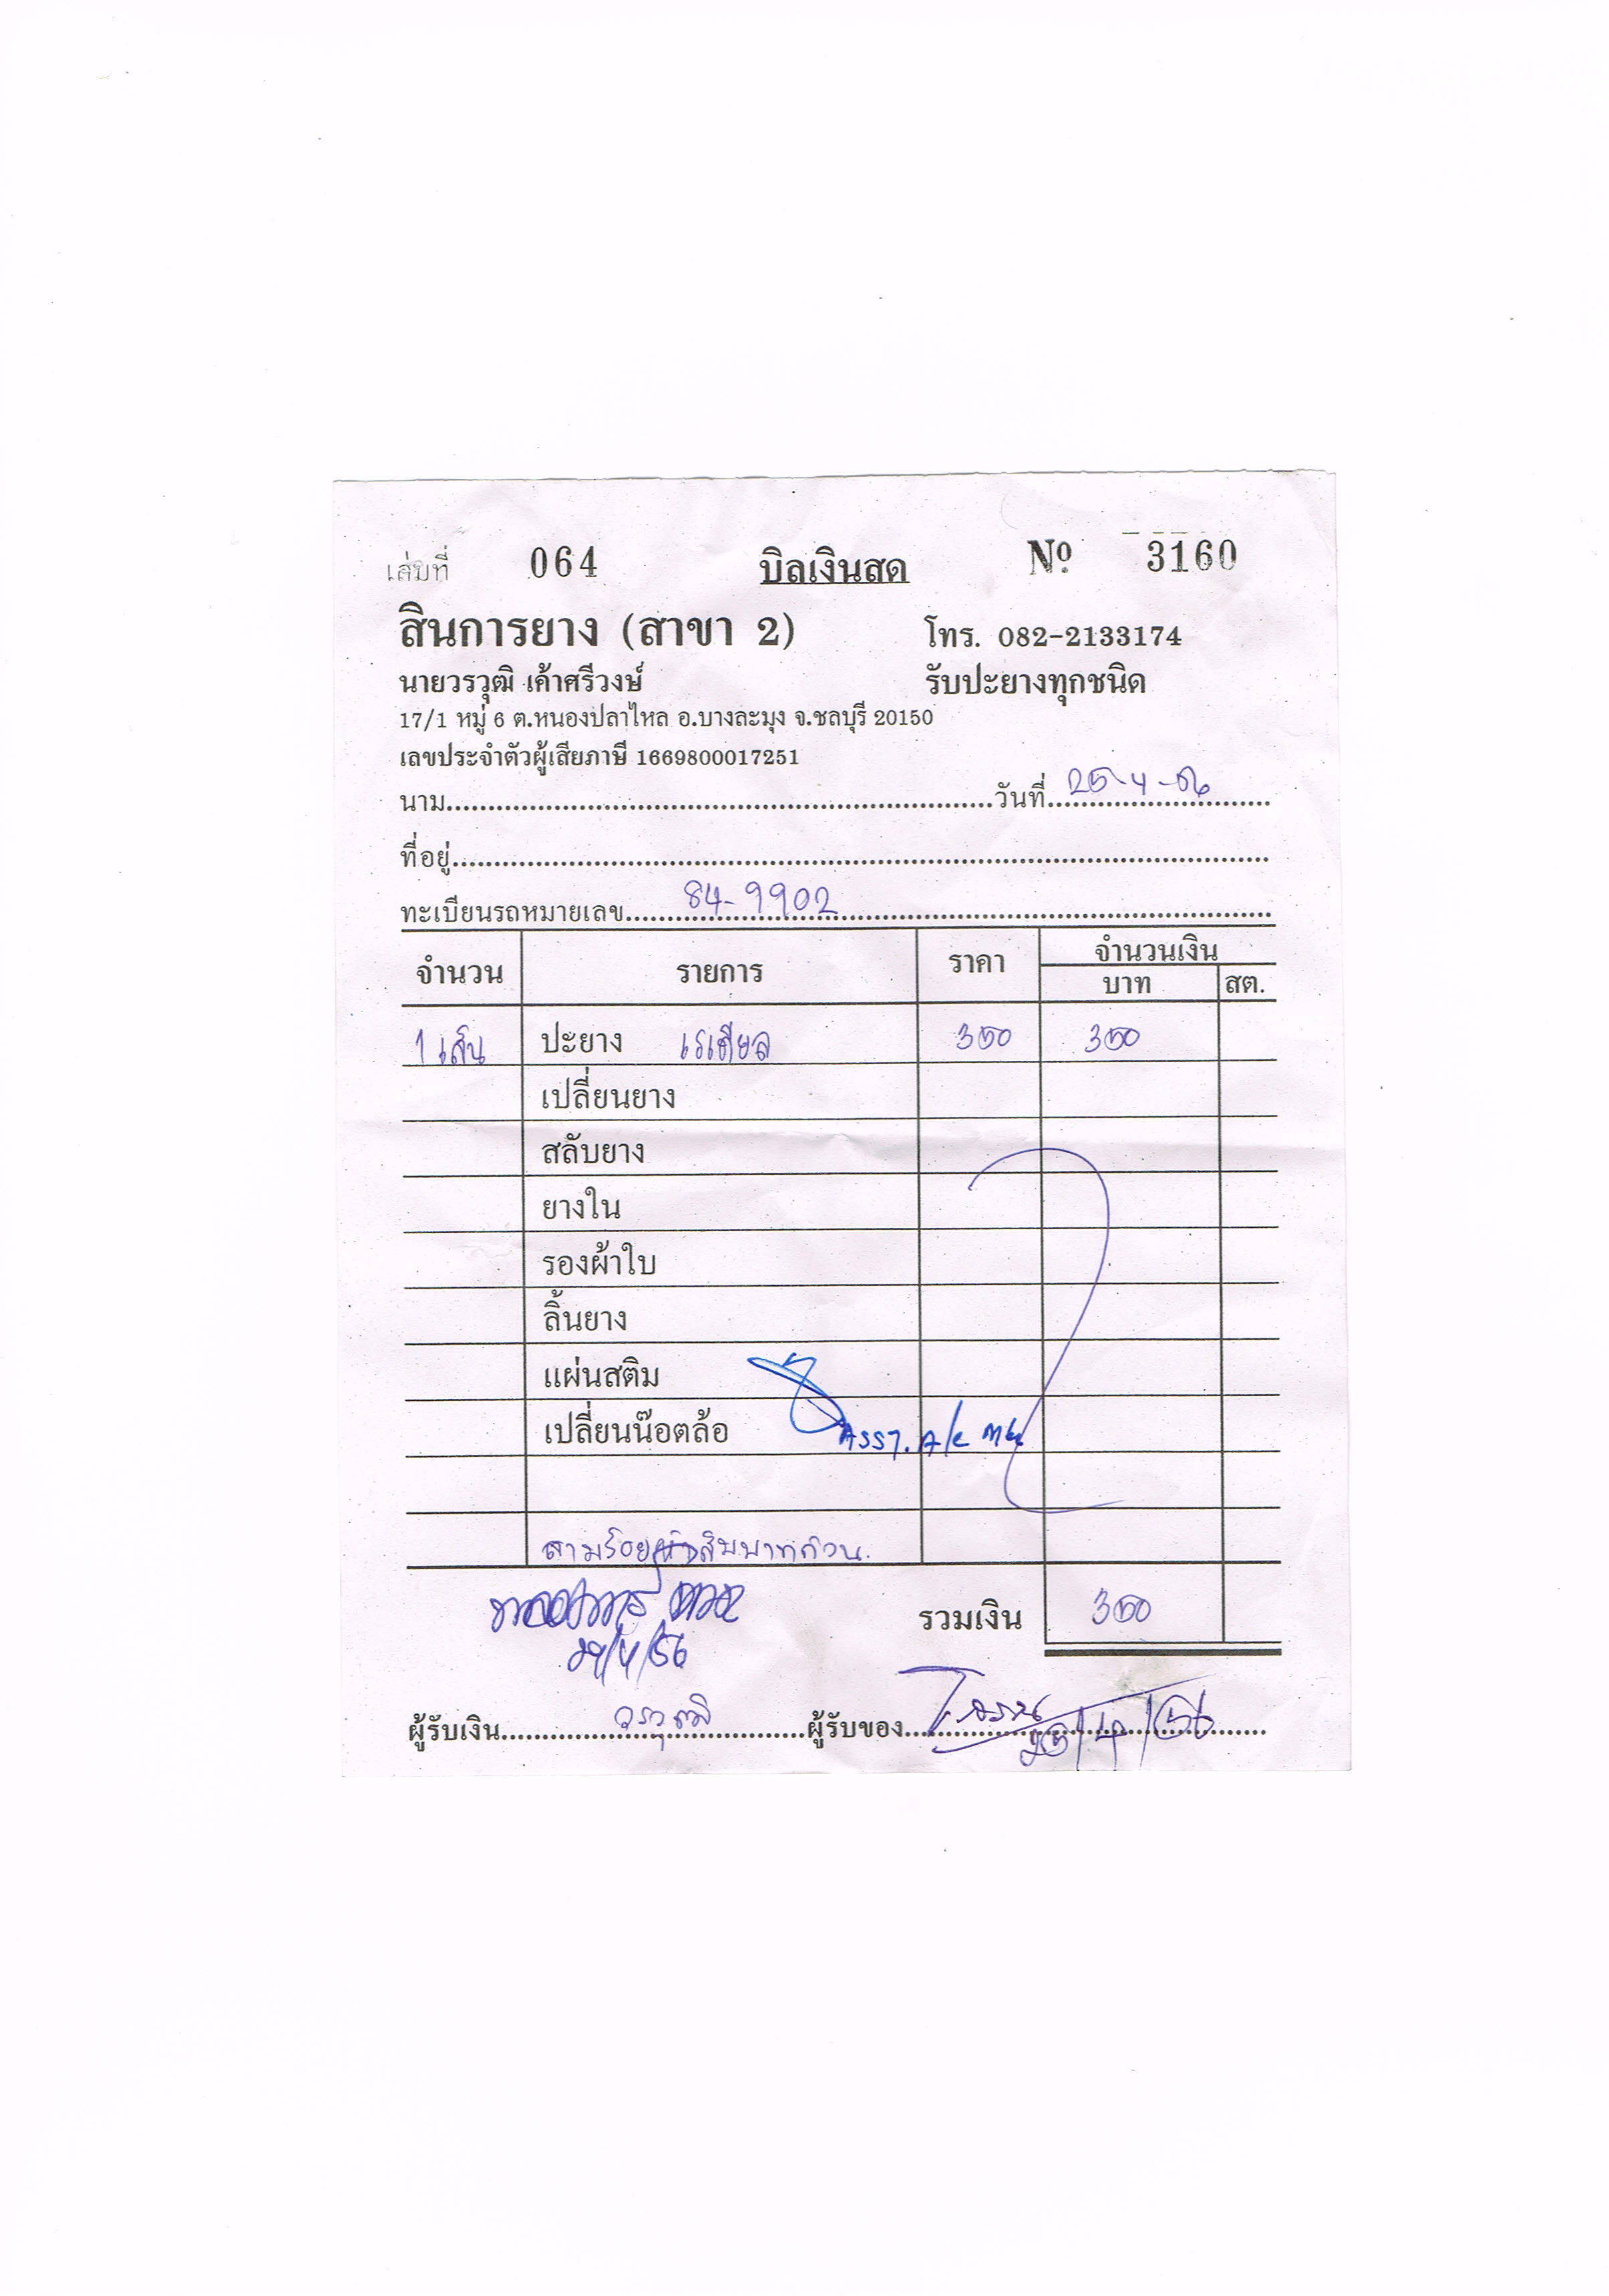 เล่มที่ 064 บิลเงินสด Nº 3160
สินการยาง (สาขา 2) โทร. 082-2133174
นายวรวุฒิ เค้าศรีวงษ์ รับปะยางทุกชนิด
17/1 หมู่ 6 ต.หนองปลาไหล อ.บางละมุง จ.ชลบุรี 20150
เลขประจำตัวผู้เสียภาษี 1669800017251
นาม วันที่ 25-4-56
ที่อยู่
ทะเบียนรถหมายเลข 84-9902
จำนวน รายการ ราคา จำนวนเงิน
บาท สต.
1 เส้น ปะยาง เรเดียล 350 350
เปลี่ยนยาง
สลับยาง
ยางใน
รองผ้าใบ
ลิ้นยาง
แผ่นสติม
เปลี่ยนน๊อตล้อ
ASST. A/C
สามร้อยห้าสิบบาทถ้วน
รวมเงิน 350
29/4/56
ผู้รับเงิน วรวุฒิ ผู้รับของ